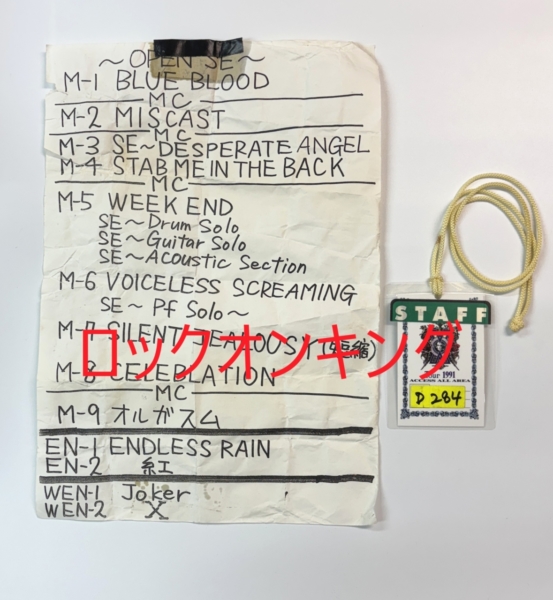 ~OPEN SE~
M-1 BLUE BLOOD
MC
M-2 MISCAST
MC
M-3 SE~DESPERATE ANGEL
M-4 STAB ME IN THE BACK
MC
M-5 WEEK END
SE~Drum Solo
SE~Guitar Solo
SE~Acoustic Section
M-6 VOICELESS SCREAMING
SE~Pf Solo~
M-7 SILENT JEALOUSY
ロックオンキング
M-8 CELEBLATION
MC
M-9 オルガスム
EN-1 ENDLESS RAIN
EN-2 紅
WEN-1 Joker
WEN-2 X
STAFF
Tour 1991
ACCESS ALL AREA
D 284